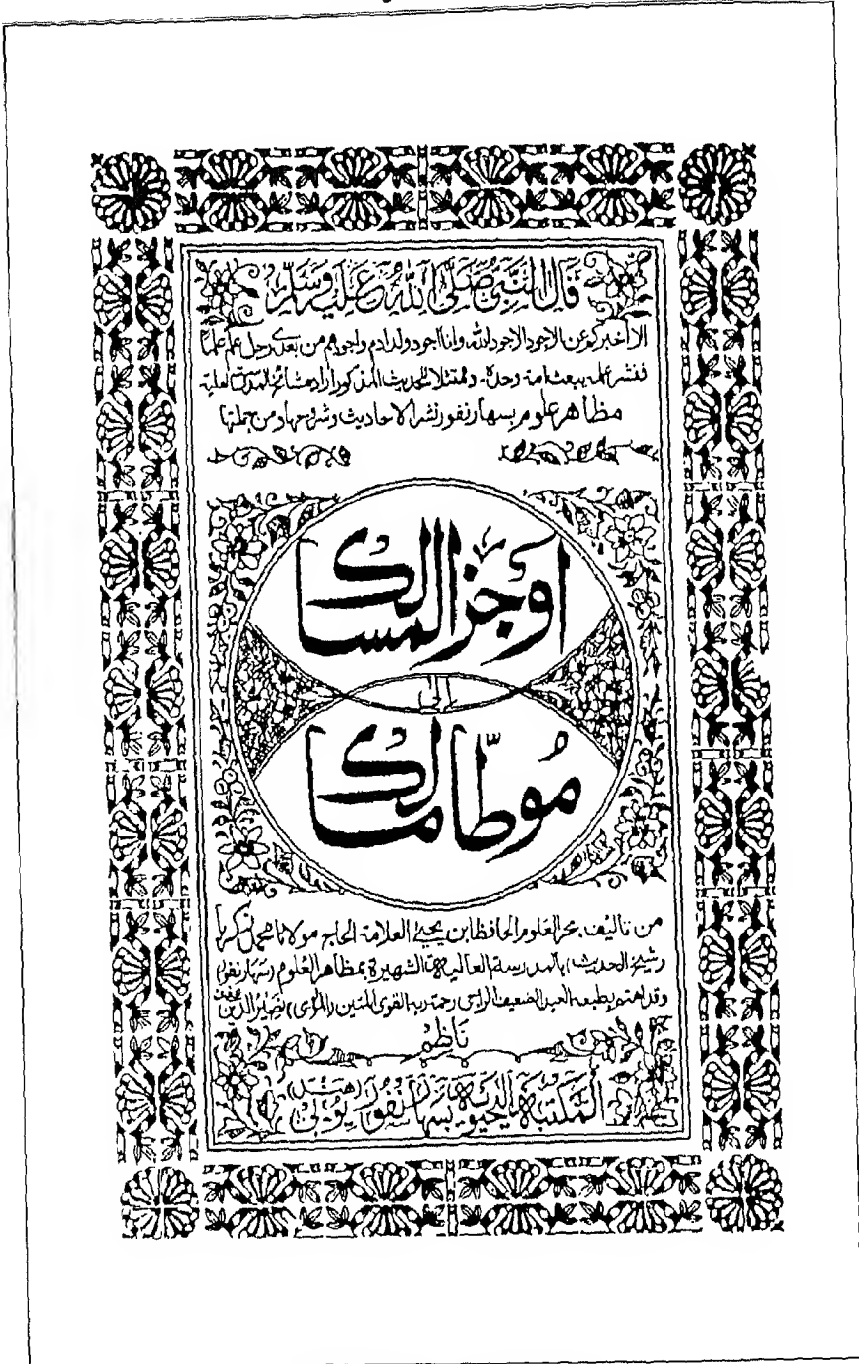 قال النبي صلى الله عليه وسلم
الا اخبركم عن الاجود الاجود الله وانا اجود ولد ادم واجودهم من بعدى رجل علم علما
فنشر علمه يبعث امة وحدة۔ وممتثلا للحديث المذكور اراد مشائخ المدرسة العلية
مظاهر علوم بسهارنفور نشر الاحاديث وشروحها ومن جملتها
اوجز المسالك
الى
موطّا مالك
من تاليف بحر العلوم الحافظ ابن يحيىٰ العلامة الحاج مولانا محمد زكريا
(شيخ الحديث) بالمدرسة العالية الشهيرة بمظاهر العلوم (سهارنفور)
وقد اهتم بطبعه العبد الضعيف الراجى رحمة ربه القوى المتين نصير الدين
ناظم
المكتبة اليحيوية سهارنفور يوپى (هند)